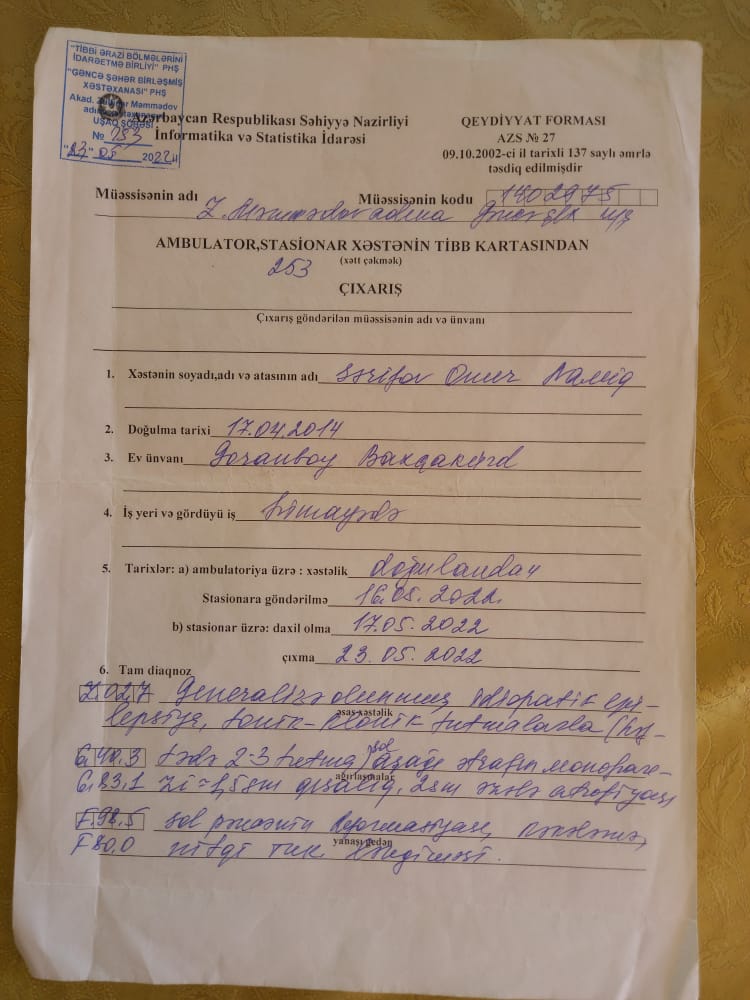 "TİBBİ ƏRAZİ BÖLMƏLƏRİNİ
İDARƏETMƏ BİRLİYİ" PHŞ
"GƏNCƏ ŞƏHƏR BİRLƏŞMİŞ
XƏSTƏXANASI" PHŞ
Akad. Məmmədov
UŞAQ ŞÖBƏSİ
№ 253
"23" 05 2022
Azərbaycan Respublikası Səhiyyə Nazirliyi
İnformatika və Statistika İdarəsi
QEYDİYYAT FORMASI
AZS № 27
09.10.2002-ci il tarixli 137 saylı əmrlə
təsdiq edilmişdir
Müəssisənin adı
Müəssisənin kodu 1402975
Z. Məmmədov adına
AMBULATOR,STASİONAR XƏSTƏNİN TİBB KARTASINDAN
(xətt çəkmək)
253
ÇIXARIŞ
Çıxarış göndərilən müəssisənin adı və ünvanı
1. Xəstənin soyadı,adı və atasının adı Şərifov Ömər Namiq
2. Doğulma tarixi 17.04.2014
3. Ev ünvanı Goranboy
4. İş yeri və gördüyü iş himayədə
5. Tarixlər: a) ambulatoriya üzrə : xəstəlik doğulandan
Stasionara göndərilmə 16.05.2022
b) stasionar üzrə: daxil olma 17.05.2022
çıxma 23.05.2022
6. Tam diaqnoz
Generalizə olunmuş idiopatik epi-
əsas xəstəlik
lepsiya, tonik-klonik tutmalarla
G.40.3 2-3 tutma) sol aşağı ətrafın monopare-
ağırlaşmalar
G.83.1 zi -1,5 sm qısalıq, 2 sm əzələ atrofiyası
F.98.5 sol pəncənin deformasiyası, kəkələmə,
yanaşı gedən
F80.0 nitqi ləngiməsi.